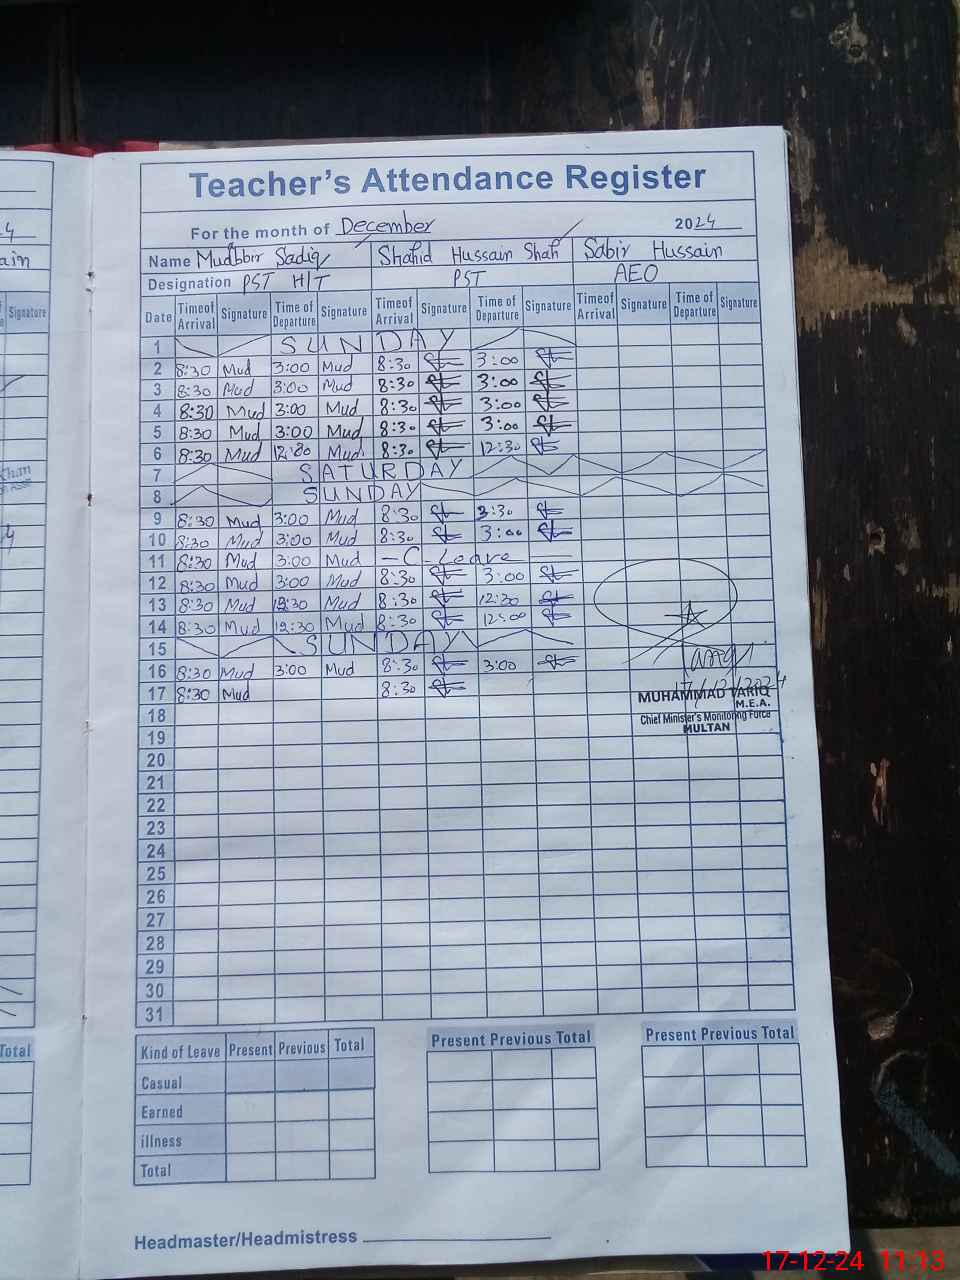 Teacher's Attendance Register
For the month of December 2024
Name Mudbbir Sadiq Shahid Hussain Shah Sabir Hussain
Designation PST H/T PST AEO
Date Time of Arrival Signature Time of Departure Signature Time of Arrival Signature Time of Departure Signature Time of Arrival Signature Time of Departure Signature
1 SUNDAY
2 8:30 Mud 3:00 Mud 8:30 3:00
3 8:30 Mud 3:00 Mud 8:30 3:00
4 8:30 Mud 3:00 Mud 8:30 3:00
5 8:30 Mud 3:00 Mud 8:30 3:00
6 8:30 Mud 12:30 Mud 8:30 12:30
7 SATURDAY
8 SUNDAY
9 8:30 Mud 3:00 Mud 8:30 3:30
10 8:30 Mud 3:00 Mud 8:30 3:00
11 8:30 Mud 3:00 Mud - C-Leave
12 8:30 Mud 3:00 Mud 8:30 3:00
13 8:30 Mud 12:30 Mud 8:30 12:30
14 8:30 Mud 12:30 Mud 8:30 12:00
15 SUNDAY
16 8:30 Mud 3:00 Mud 8:30 3:00
17 8:30 Mud 8:30
17/12/2024
MUHAMMAD TARIQ
M.E.A.
Chief Minister's Monitoring Force
MULTAN
18
19
20
21
22
23
24
25
26
27
28
29
30
31
Kind of Leave Present Previous Total Present Previous Total Present Previous Total
Casual
Earned
illness
Total
Headmaster/Headmistress
Signature
Total
17-12-24 11:13